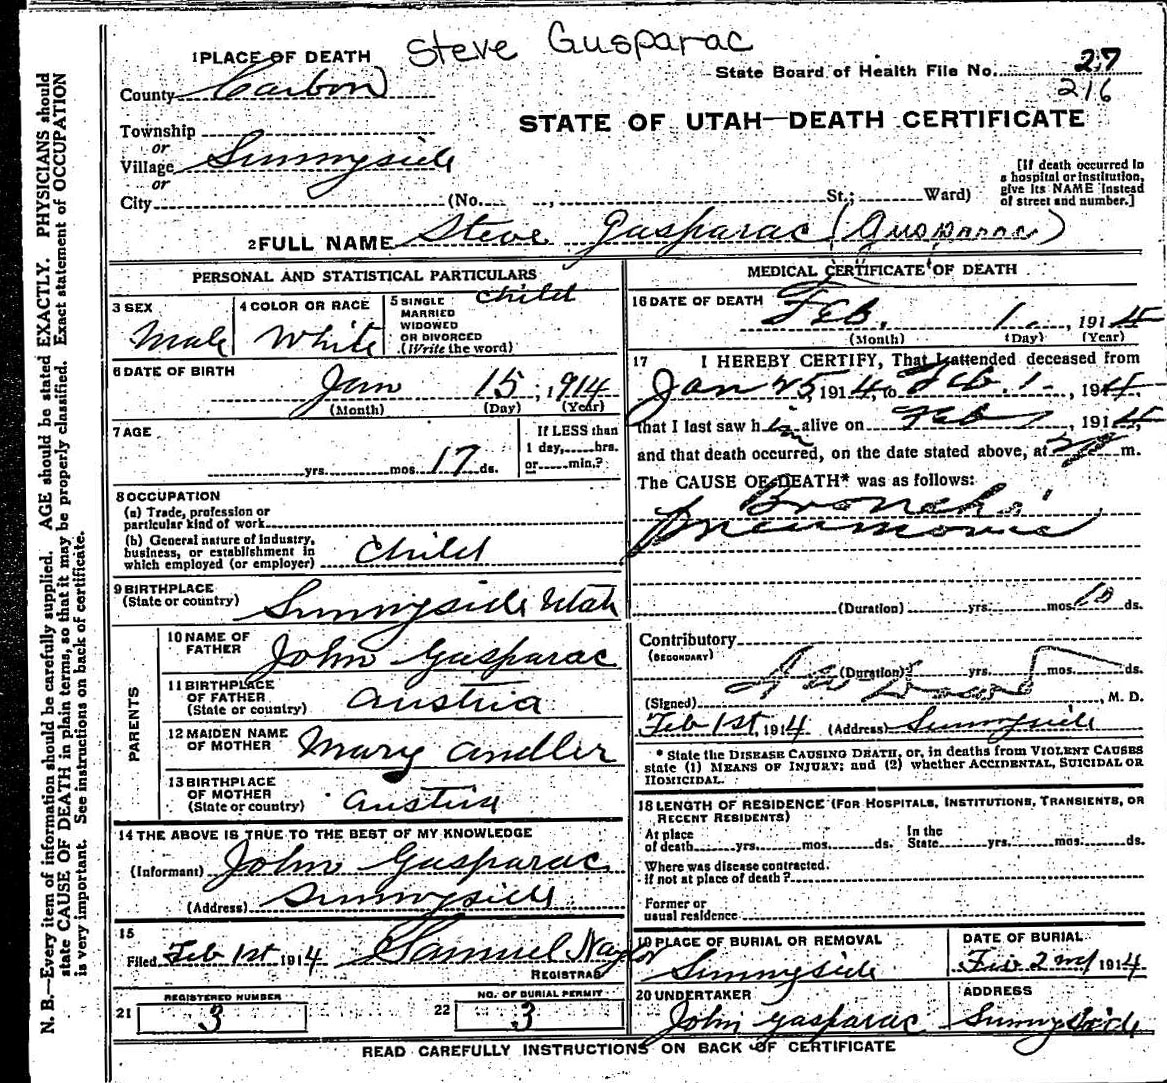 Steve Gusparac
1 PLACE OF DEATH
County Carbon
State Board of Health File No. 27
216
STATE OF UTAH—DEATH CERTIFICATE
Township
or
Village Sunnyside
or
City (No. , St.; Ward)
[If death occurred in
a hospital or institution,
give its NAME instead
of street and number.]
2 FULL NAME Steve Gasparac (Gusparac)
PERSONAL AND STATISTICAL PARTICULARS
3 SEX
Male
4 COLOR OR RACE
White
5 SINGLE
MARRIED
WIDOWED
OR DIVORCED
(Write the word)
child
6 DATE OF BIRTH
Jan 15, 1914
(Month) (Day) (Year)
7 AGE
yrs. mos. 17 ds.
If LESS than
1 day, hrs.
or min.?
8 OCCUPATION
(a) Trade, profession or
particular kind of work
(b) General nature of industry,
business, or establishment in
which employed (or employer) child
9 BIRTHPLACE
(State or country) Sunnyside Utah
PARENTS
10 NAME OF
FATHER John Gasparac
11 BIRTHPLACE
OF FATHER
(State or country) Austria
12 MAIDEN NAME
OF MOTHER Mary Andler
13 BIRTHPLACE
OF MOTHER
(State or country) Austria
14 THE ABOVE IS TRUE TO THE BEST OF MY KNOWLEDGE
(Informant) John Gasparac
(Address) Sunnyside
15
Filed Feb 1st 1914 Samuel Naylor
REGISTRAR
21 REGISTERED NUMBER
3
22 NO. OF BURIAL PERMIT
3
MEDICAL CERTIFICATE OF DEATH
16 DATE OF DEATH
Feb. 1. , 1914
(Month) (Day) (Year)
17 I HEREBY CERTIFY, That I attended deceased from
Jan 25, 1914, to Feb. 1. , 1914
that I last saw him alive on Feb 1, 1914,
and that death occurred, on the date stated above, at m.
The CAUSE OF DEATH* was as follows:
Broncho
pneumonia
(Duration) yrs. mos. 10 ds.
Contributory
(SECONDARY)
(Duration) yrs. mos. ds.
(Signed) , M. D.
Feb 1st, 1914 (Address) Sunnyside
* State the DISEASE CAUSING DEATH, or, in deaths from VIOLENT CAUSES
state (1) MEANS OF INJURY; and (2) whether ACCIDENTAL, SUICIDAL OR
HOMICIDAL.
18 LENGTH OF RESIDENCE (FOR HOSPITALS, INSTITUTIONS, TRANSIENTS, OR
RECENT RESIDENTS)
At place
of death yrs. mos. ds.
In the
State yrs. mos. ds.
Where was disease contracted,
if not at place of death?
Former or
usual residence
19 PLACE OF BURIAL OR REMOVAL
Sunnyside
DATE OF BURIAL
Feb 2nd 1914
20 UNDERTAKER
John Gasparac
ADDRESS
Sunnyside
READ CAREFULLY INSTRUCTIONS ON BACK OF CERTIFICATE
N. B.—Every item of information should be carefully supplied. AGE should be stated EXACTLY. PHYSICIANS should
state CAUSE OF DEATH in plain terms, so that it may be properly classified. Exact statement of OCCUPATION
is very important. See instructions on back of certificate.